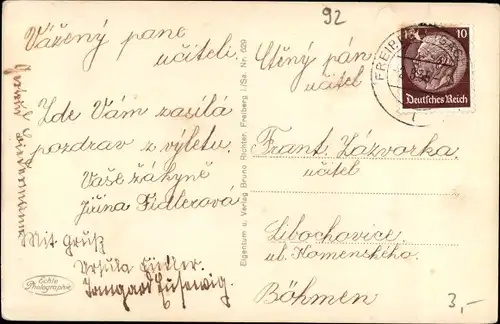 92
Vážený pane
učiteli.
Zde Vám zasílá
pozdrav z výletu.
Vaše žákyně
Jiřina Fidlerová
Mit Gruß
Ursula Fiedler.
Irmgard
Echte
Photographie
Eigentum u. Verlag Bruno Richter, Freiberg i./Sa. Nr. 629
Ctěný pán
učitel
Frant. Zázvorka
učitel
Libochovice.
ul. Komenského.
Böhmen
FREIB
10
Deutsches Reich
3,-